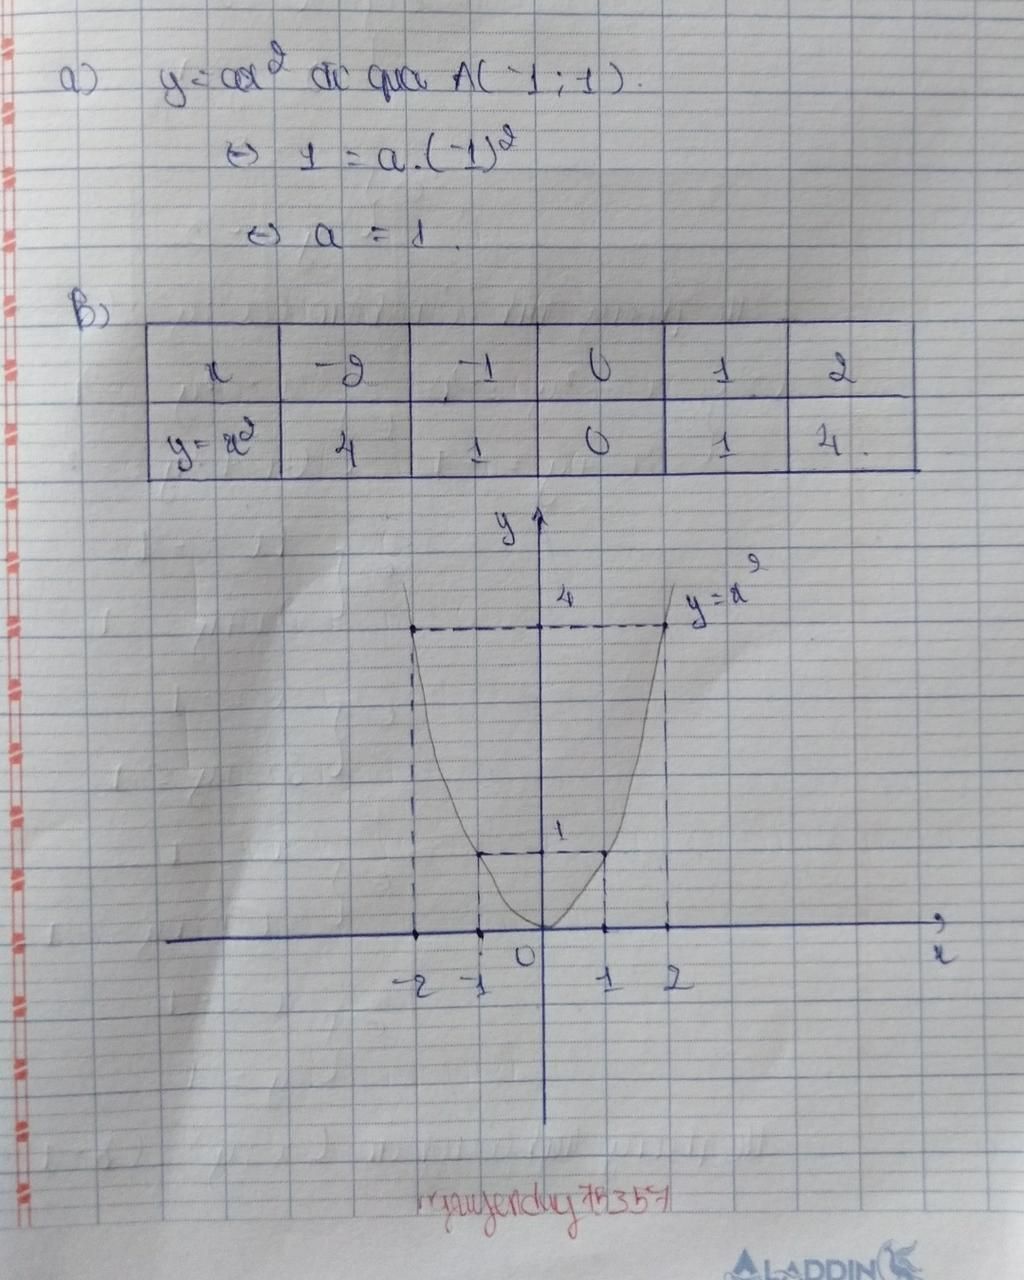 a) y = ax² đt qua A(-1; 1).
⇔ 1 = a.(-1)²
⇔ a = 1.
B)
x -2 -1 0 1 2
y = x² 4 1 0 1 4.
y
4 y = x²
1
0 x
-2 -1 1 2
nguyenduy75357
ALADDIN